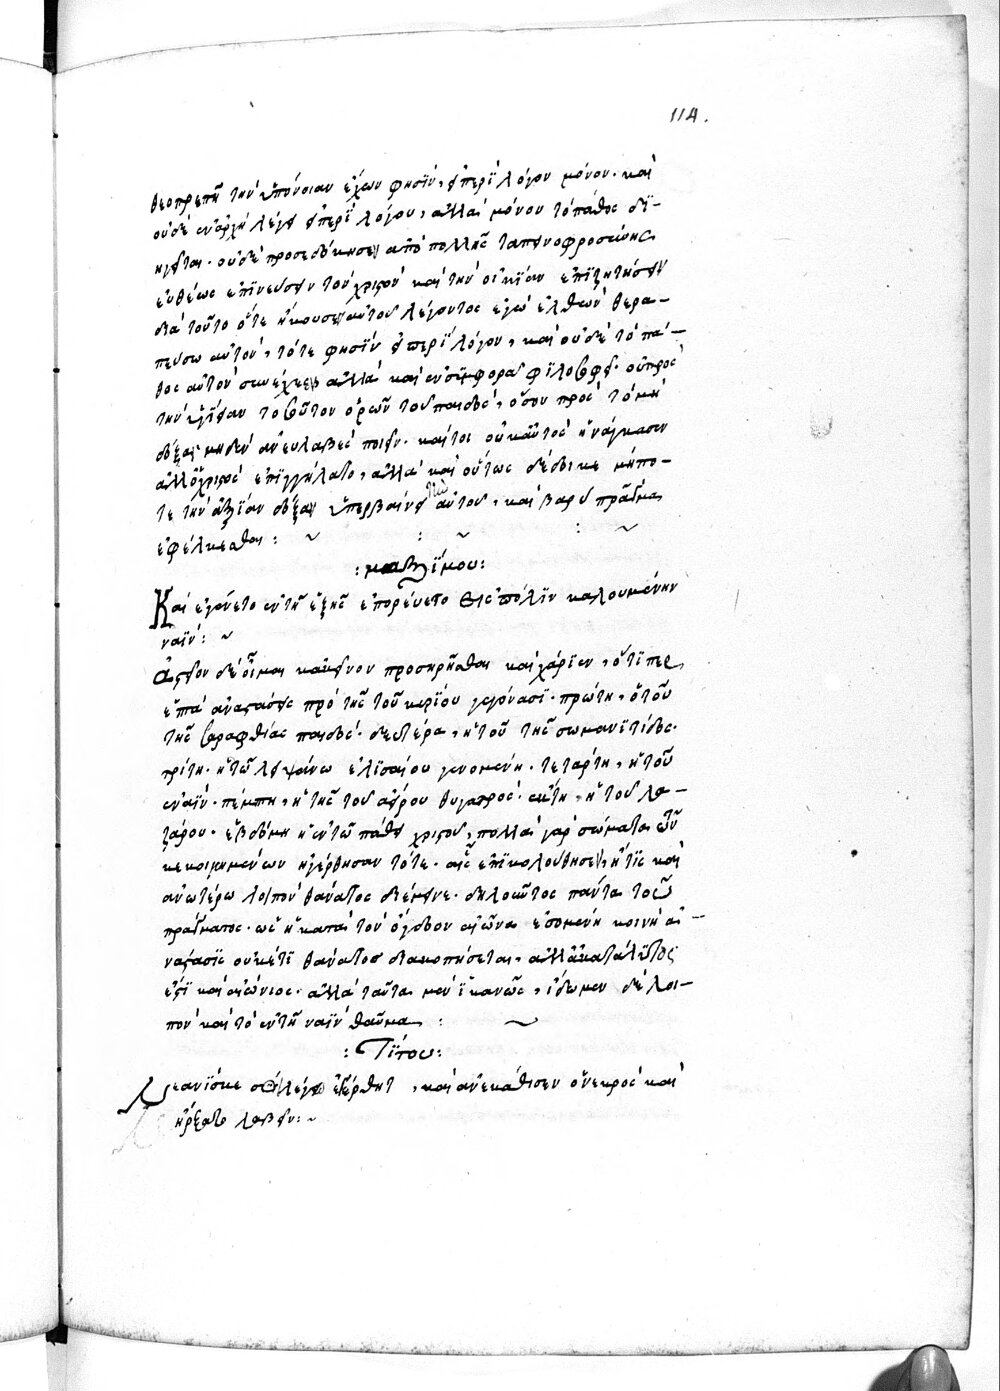 114.
θεοπρεπῆ τὴν ὑπόνοιαν ἔχων φησὶν, εἰπὲ λόγῳ μόνον. καὶ
οὐδὲ ἐν ἀρχῇ λέγει εἰπὲ λόγῳ, ἀλλὰ μόνον τὸ πάθος δι-
ηγεῖται. οὐδὲ προσεδόκησεν ἀπὸ πολλῆς ταπεινοφροσύνης
εὐθέως ἐπινεύσειν τὸν χριστὸν καὶ τὴν οἰκίαν ἐπιζητήσειν
διὰ τοῦτο ὅτε ἤκουσεν αὐτοῦ λέγοντος ἐγὼ ἐλθὼν θερα-
πεύσω αὐτὸν, τότε φησὶν εἰπὲ λόγῳ, καὶ οὐδὲ τὸ πά-
θος αὐτὸν συνέχεεν ἀλλὰ καὶ ἐν συμφορᾷ φιλοσοφεῖ. οὐ πρὸς
τὴν ὑγείαν τοσοῦτον ὁρῶν τοῦ παιδὸς, ὅσον πρὸς τὸ μὴ
δόξαι μηδὲν ἀνευλαβὲς ποιεῖν. καίτοι οὐκ αὐτὸς ἠνάγκασεν
ἀλλ' ὁ χριστὸς ἐπηγγείλατο, ἀλλὰ καὶ οὕτως δέδοικε μήπο-
τε τὴν ἀξίαν δόξαν ὑπερβαίνειν αὐτοῦ, καὶ βαρὺ πρᾶγμα
ἐφέλκεσθαι : ~ : ~ : ~
: μαξίμου :
Καὶ ἐγένετο ἐν τῇ ἑξῆς ἐπορεύετο εἰς πόλιν καλουμένην
ναΐν : ~
ἀστεῖον δὲ οἶμαι κἀκεῖνον προσθεῖναι καὶ χάριεν, ὅτι περ
ἑπτὰ ἀναστάσεις πρὸ τῆς τοῦ κυρίου γεγόνασι. πρώτη, ἡ τοῦ
τῆς σαραφθίας παιδός. δευτέρα, ἡ τοῦ τῆς σωμανίτιδος.
τρίτη. ἡ τῷ λειψάνῳ ἐλισαίου γενομένη. τετάρτη, ἡ τοῦ
ἐν ναΐν. πέμπτη, ἡ τῆς τοῦ ἰαείρου θυγατρός. ἕκτη, ἡ τοῦ λα-
ζάρου. ἑβδόμη ἡ ἐν τῷ πάθει χριστοῦ, πολλὰ γὰρ σώματα τῶν
κεκοιμημένων ἠγέρθησαν τότε. αἷς ἐπηκολούθησεν, ἥτις καὶ
ἀνωτέρω λοιπὸν θανάτου διέμεινε. δηλοῦντος πάντα τοῦ
πράγματος. ὡς ἡ κατὰ τὸν ὄγδοον αἰῶνα ἐσομένη κοινὴ ἀ-
νάστασις οὐκέτι θανάτῳ διακοπήσεται, ἀλλ' ἀκατάλυτος
ἐστὶ καὶ αἰώνιος. ἀλλὰ ταῦτα μὲν ἱκανῶς, ἴδωμεν δὲ λοι-
πὸν καὶ τὸ ἐν τῇ ναΐν θαῦμα : ~
: Τίτου :
Νεανίσκε σοὶ λέγω ἐγέρθητι, καὶ ἀνεκάθισεν ὁ νεκρὸς καὶ
ἤρξατο λαλεῖν : ~